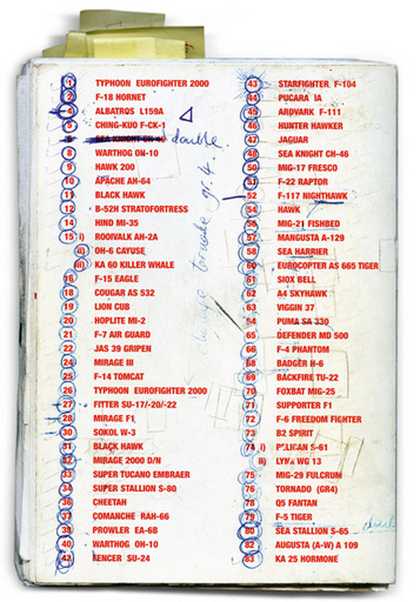 1 TYPHOON EUROFIGHTER 2000
2 F-18 HORNET
5 ALBATROS L159A
6 CHING-KUO F-CK-1
SEA KNIGHT CH-46 double
8 WARTHOG OH-10
9 HAWK 200
10 APACHE AH-64
11 BLACK HAWK
12 B-52H STRATOFORTRESS
14 HIND MI-35
15 i) ROOIVALK AH-2A
ii) OH-6 CAYUSE
iii) KA 60 KILLER WHALE
16 F-15 EAGLE
18 COUGAR AS 532
19 LION CUB
20 HOPLITE MI-2
21 F-7 AIR GUARD
22 JAS 39 GRIPEN
24 MIRAGE III
25 F-14 TOMCAT
26 TYPHOON EUROFIGHTER 2000
27 FITTER SU-17/-20/-22
28 MIRAGE F1
30 SOKOL W-3
31 BLACK HAWK
32 MIRAGE 2000 D/N
33 SUPER TUCANO EMBRAER
34 SUPER STALLION S-80
36 CHEETAH
37 COMANCHE RAH-66
38 PROWLER EA-6B
40 WARTHOG OH-10
42 FENCER SU-24
tornado gr.4.
43 STARFIGHTER F-104
44 PUCARA IA
45 ARDVARK F-111
46 HUNTER HAWKER
47 JAGUAR
48 SEA KNIGHT CH-46
50 MIG-17 FRESCO
51 F-22 RAPTOR
52 F-117 NIGHTHAWK
54 HAWK
56 MIG-21 FISHBED
57 MANGUSTA A-129
58 SEA HARRIER
60 EUROCOPTER AS 665 TIGER
61 SIOX BELL
62 A4 SKYHAWK
63 VIGGEN 37
64 PUMA SA 330
65 DEFENDER MD 500
66 F-4 PHANTOM
68 BADGER H-6
69 BACKFIRE TU-22
70 FOXBAT MIG-25
71 SUPPORTER F1
72 F-6 FREEDOM FIGHTER
73 B2 SPIRIT
74 i) PELICAN S-61
ii) LYNX WG 13
75 MIG-29 FULCRUM
76 TORNADO (GR4)
78 Q5 FANTAN
79 F-5 TIGER
80 SEA STALLION S-65 double
82 AUGUSTA (A-W) A 109
83 KA 25 HORMONE